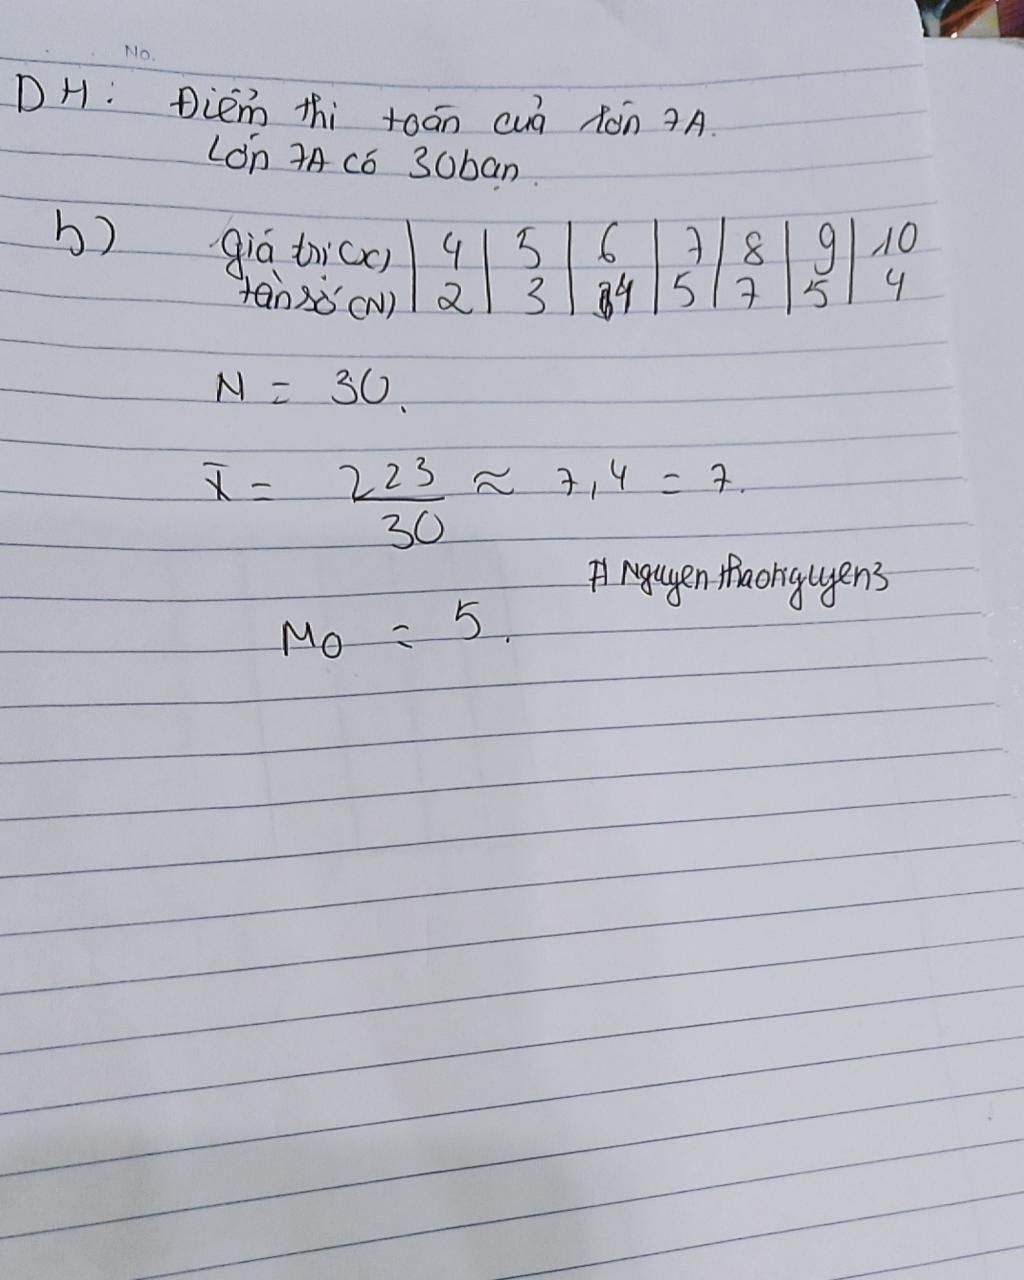 No.
DH: Điểm thi toán của lớp 7A.
Lớp 7A có 30 bạn.
b) giá trị (x) | 4 | 5 | 6 | 7 | 8 | 9 | 10
tần số (N) | 2 | 3 | 4 | 5 | 7 | 5 | 4
N = 30.
X̄ = 223/30 ≈ 7,4 = 7.
# Nguyenthaonguyen3
Mo = 5.